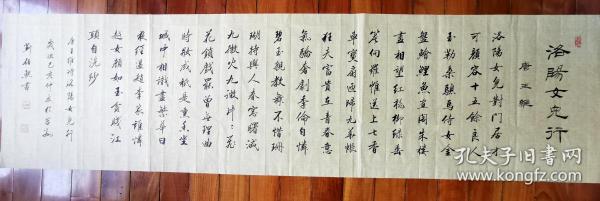 洛陽女兒行
唐 王維
洛陽女兒對門居才
可顏容十五餘良人
玉勒乘驄馬侍女金
盤鱠鯉魚畫閣朱樓
盡相望紅桃柳綠垂
簷向羅帷送上七香
車寶扇迎歸九華帳
狂夫富貴在青春意
氣驕奢劇季倫自憐
碧玉親教舞不惜珊
瑚持與人春窗曙滅
九微火九微片片飛
花鎖戲罷曾無理曲
時妝成祇是熏香坐
城中相識盡繁華日
夜經過趙李家誰憐
越女顏如玉貧賤江
頭自浣沙
唐王維詩洛陽女兒行
孔夫子旧书网